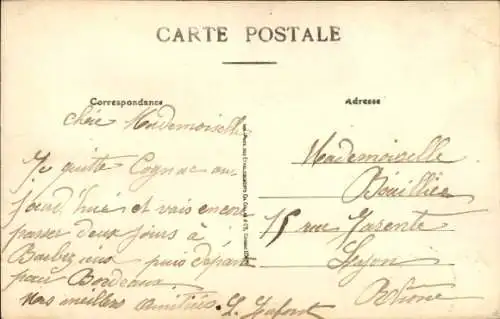 CARTE POSTALE
Correspondance
Adresse
chère Mademoiselle
Je quitte Cognac au
jourd'hui et vais encore
passer deux jours à
Barbezieux puis départ
pour Bordeaux.
Nos meilleurs amitiés. L. Lafont
Mademoiselle
Bouillier
15 rue
Lyon
Rhône